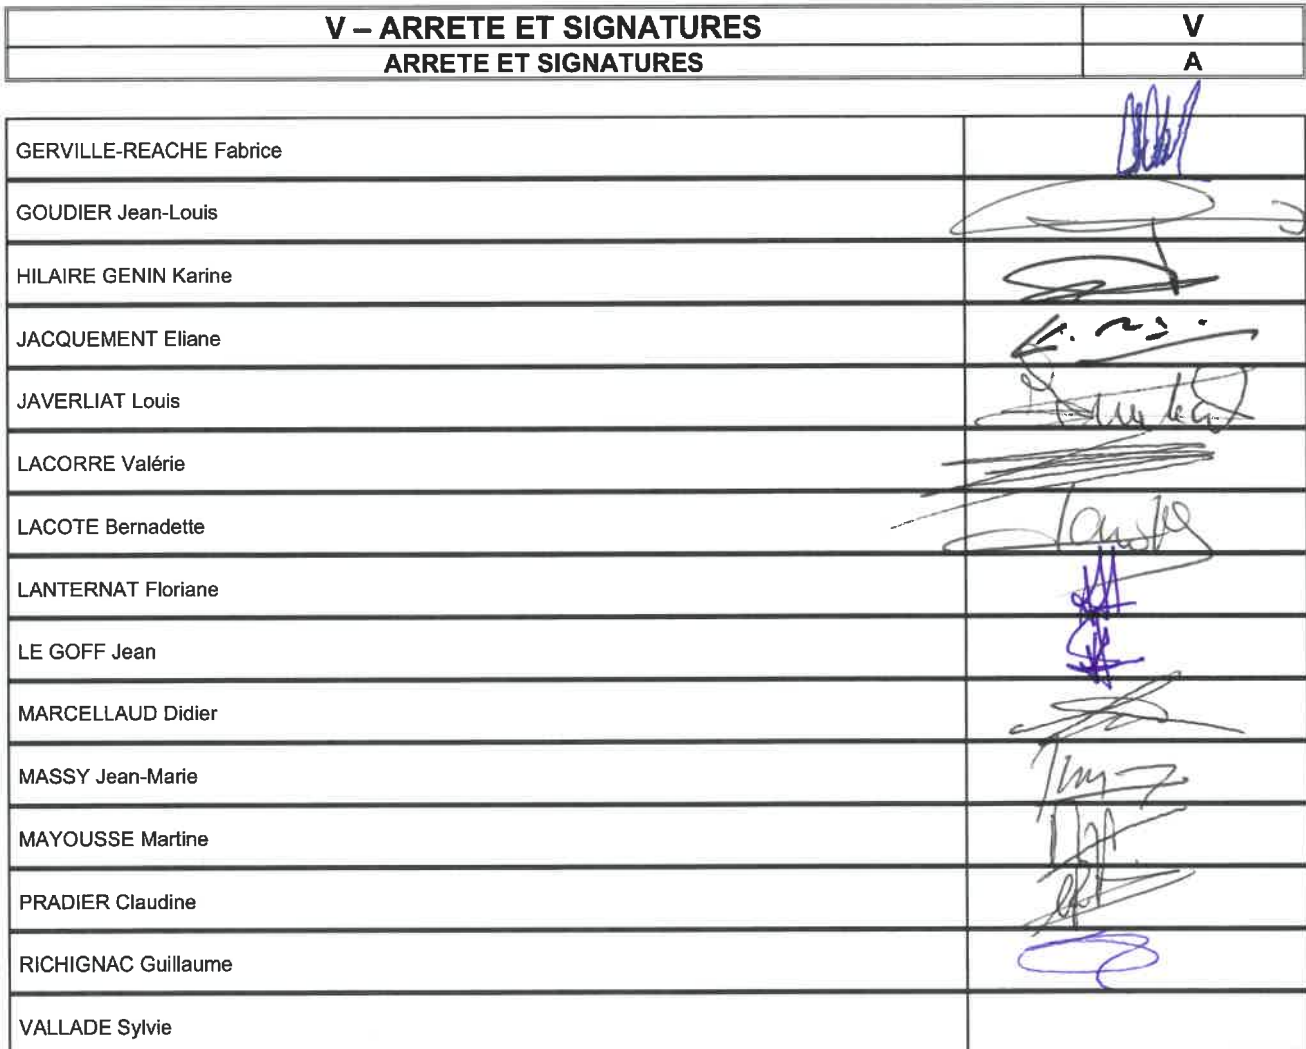 V – ARRETE ET SIGNATURES V
ARRETE ET SIGNATURES A
GERVILLE-REACHE Fabrice
GOUDIER Jean-Louis
HILAIRE GENIN Karine
JACQUEMENT Eliane
JAVERLIAT Louis
LACORRE Valérie
LACOTE Bernadette
LANTERNAT Floriane
LE GOFF Jean
MARCELLAUD Didier
MASSY Jean-Marie
MAYOUSSE Martine
PRADIER Claudine
RICHIGNAC Guillaume
VALLADE Sylvie